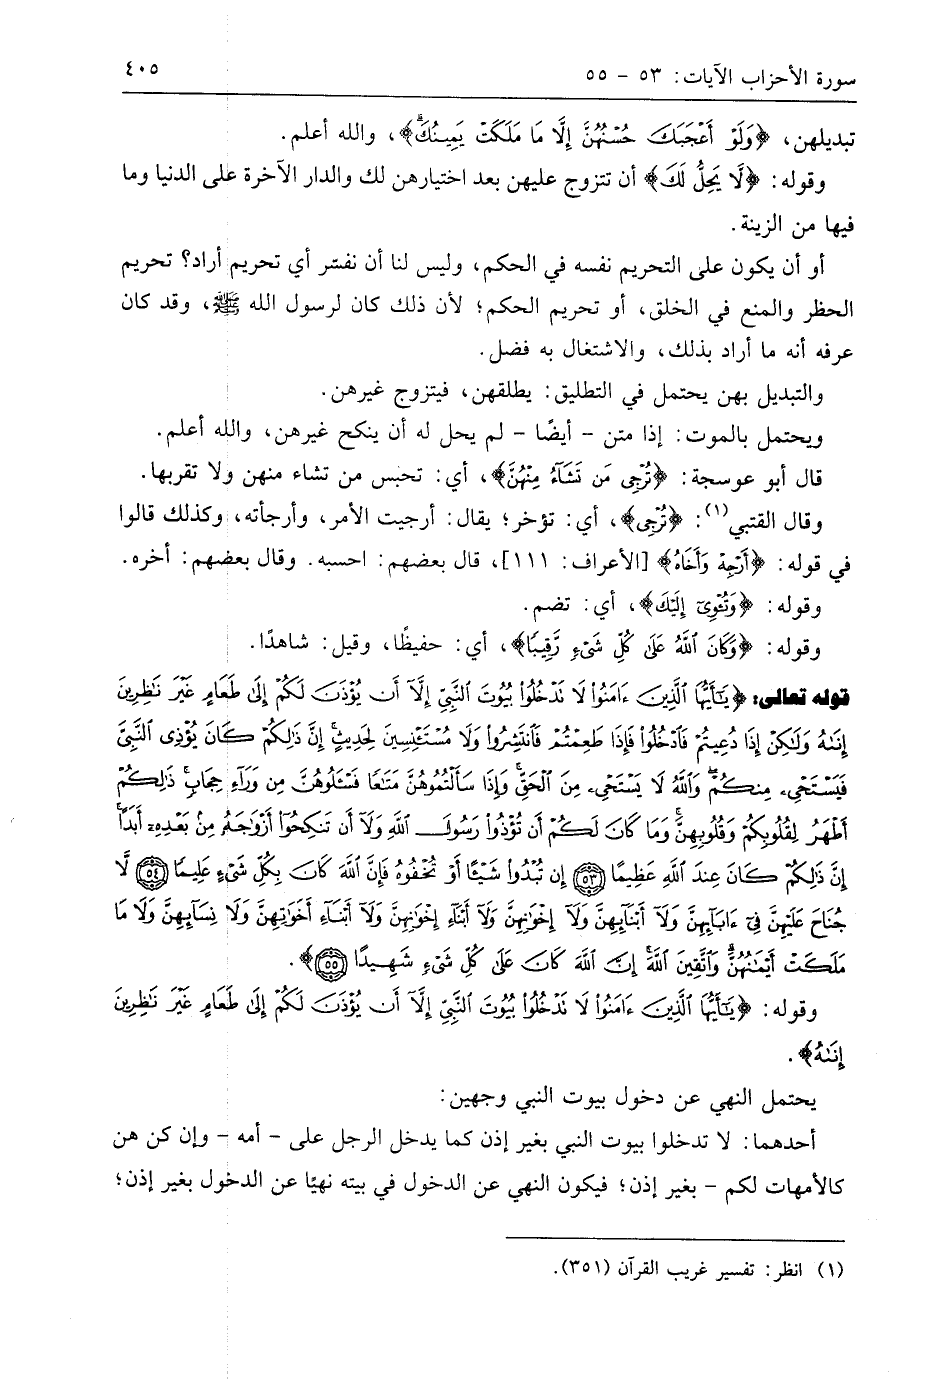 سورة الأحزاب الآيات: ٥٣ - ٥٥
٤٠٥
تبديلهن، ﴿وَلَوْ أَعْجَبَكَ حُسْنُهُنَّ إِلَّا مَا مَلَكَتْ يَمِينُكَ﴾، والله أعلم.
وقوله: ﴿لَّا يَحِلُّ لَكَ﴾ أن تتزوج عليهن بعد اختيارهن لك والدار الآخرة على الدنيا وما
فيها من الزينة.
أو أن يكون على التحريم نفسه في الحكم، وليس لنا أن نفسّر أي تحريم أراد؟ تحريم
الحظر والمنع في الخلق، أو تحريم الحكم؛ لأن ذلك كان لرسول الله ﷺ، وقد كان
عرفه أنه ما أراد بذلك، والاشتغال به فضل.
والتبديل بهن يحتمل في التطليق: يطلقهن، فيتزوج غيرهن.
ويحتمل بالموت: إذا متن - أيضًا - لم يحل له أن ينكح غيرهن، والله أعلم.
قال أبو عوسجة: ﴿تُرْجِى مَن تَشَآءُ مِنْهُنَّ﴾، أي: تحبس من تشاء منهن ولا تقربها.
وقال القتبي(١): ﴿تُرْجِى﴾، أي: تؤخر؛ يقال: أرجيت الأمر، وأرجأته، وكذلك قالوا
في قوله: ﴿أَرْجِهْ وَأَخَاهُ﴾ [الأعراف: ١١١]، قال بعضهم: احسبه. وقال بعضهم: أخره.
وقوله: ﴿وَتُـْٔوِىٓ إِلَيْكَ﴾، أي: تضم.
وقوله: ﴿وَكَانَ ٱللَّهُ عَلَىٰ كُلِّ شَىْءٍ رَّقِيبًا﴾، أي: حفيظًا، وقيل: شاهدًا.
قوله تعالى: ﴿يَـٰٓأَيُّهَا ٱلَّذِينَ ءَامَنُوا۟ لَا تَدْخُلُوا۟ بُيُوتَ ٱلنَّبِىِّ إِلَّآ أَن يُؤْذَنَ لَكُمْ إِلَىٰ طَعَامٍ غَيْرَ نَـٰظِرِينَ
إِنَىٰهُ وَلَـٰكِنْ إِذَا دُعِيتُمْ فَٱدْخُلُوا۟ فَإِذَا طَعِمْتُمْ فَٱنتَشِرُوا۟ وَلَا مُسْتَـْٔنِسِينَ لِحَدِيثٍ ۚ إِنَّ ذَٰلِكُمْ كَانَ يُؤْذِى ٱلنَّبِىَّ
فَيَسْتَحْىِۦ مِنكُمْ ۖ وَٱللَّهُ لَا يَسْتَحْىِۦ مِنَ ٱلْحَقِّ ۚ وَإِذَا سَأَلْتُمُوهُنَّ مَتَـٰعًا فَسْـَٔلُوهُنَّ مِن وَرَآءِ حِجَابٍ ۚ ذَٰلِكُمْ
أَطْهَرُ لِقُلُوبِكُمْ وَقُلُوبِهِنَّ ۚ وَمَا كَانَ لَكُمْ أَن تُؤْذُوا۟ رَسُولَ ٱللَّهِ وَلَآ أَن تَنكِحُوٓا۟ أَزْوَٰجَهُۥ مِنۢ بَعْدِهِۦٓ أَبَدًا ۚ
إِنَّ ذَٰلِكُمْ كَانَ عِندَ ٱللَّهِ عَظِيمًا ٥٣ إِن تُبْدُوا۟ شَيْـًٔا أَوْ تُخْفُوهُ فَإِنَّ ٱللَّهَ كَانَ بِكُلِّ شَىْءٍ عَلِيمًا ٥٤ لَّا
جُنَاحَ عَلَيْهِنَّ فِىٓ ءَابَآئِهِنَّ وَلَآ أَبْنَآئِهِنَّ وَلَآ إِخْوَٰنِهِنَّ وَلَآ أَبْنَآءِ إِخْوَٰنِهِنَّ وَلَآ أَبْنَآءِ أَخَوَٰتِهِنَّ وَلَا نِسَآئِهِنَّ وَلَا مَا
مَلَكَتْ أَيْمَـٰنُهُنَّ ۗ وَٱتَّقِينَ ٱللَّهَ ۚ إِنَّ ٱللَّهَ كَانَ عَلَىٰ كُلِّ شَىْءٍ شَهِيدًا ٥٥﴾.
وقوله: ﴿يَـٰٓأَيُّهَا ٱلَّذِينَ ءَامَنُوا۟ لَا تَدْخُلُوا۟ بُيُوتَ ٱلنَّبِىِّ إِلَّآ أَن يُؤْذَنَ لَكُمْ إِلَىٰ طَعَامٍ غَيْرَ نَـٰظِرِينَ
إِنَىٰهُ﴾.
يحتمل النهي عن دخول بيوت النبي وجهين:
أحدهما: لا تدخلوا بيوت النبي بغير إذن كما يدخل الرجل على - أمه - وإن كن هن
كالأمهات لكم - بغير إذن؛ فيكون النهي عن الدخول في بيته نهيًا عن الدخول بغير إذن؛
(١) انظر: تفسير غريب القرآن (٣٥١).